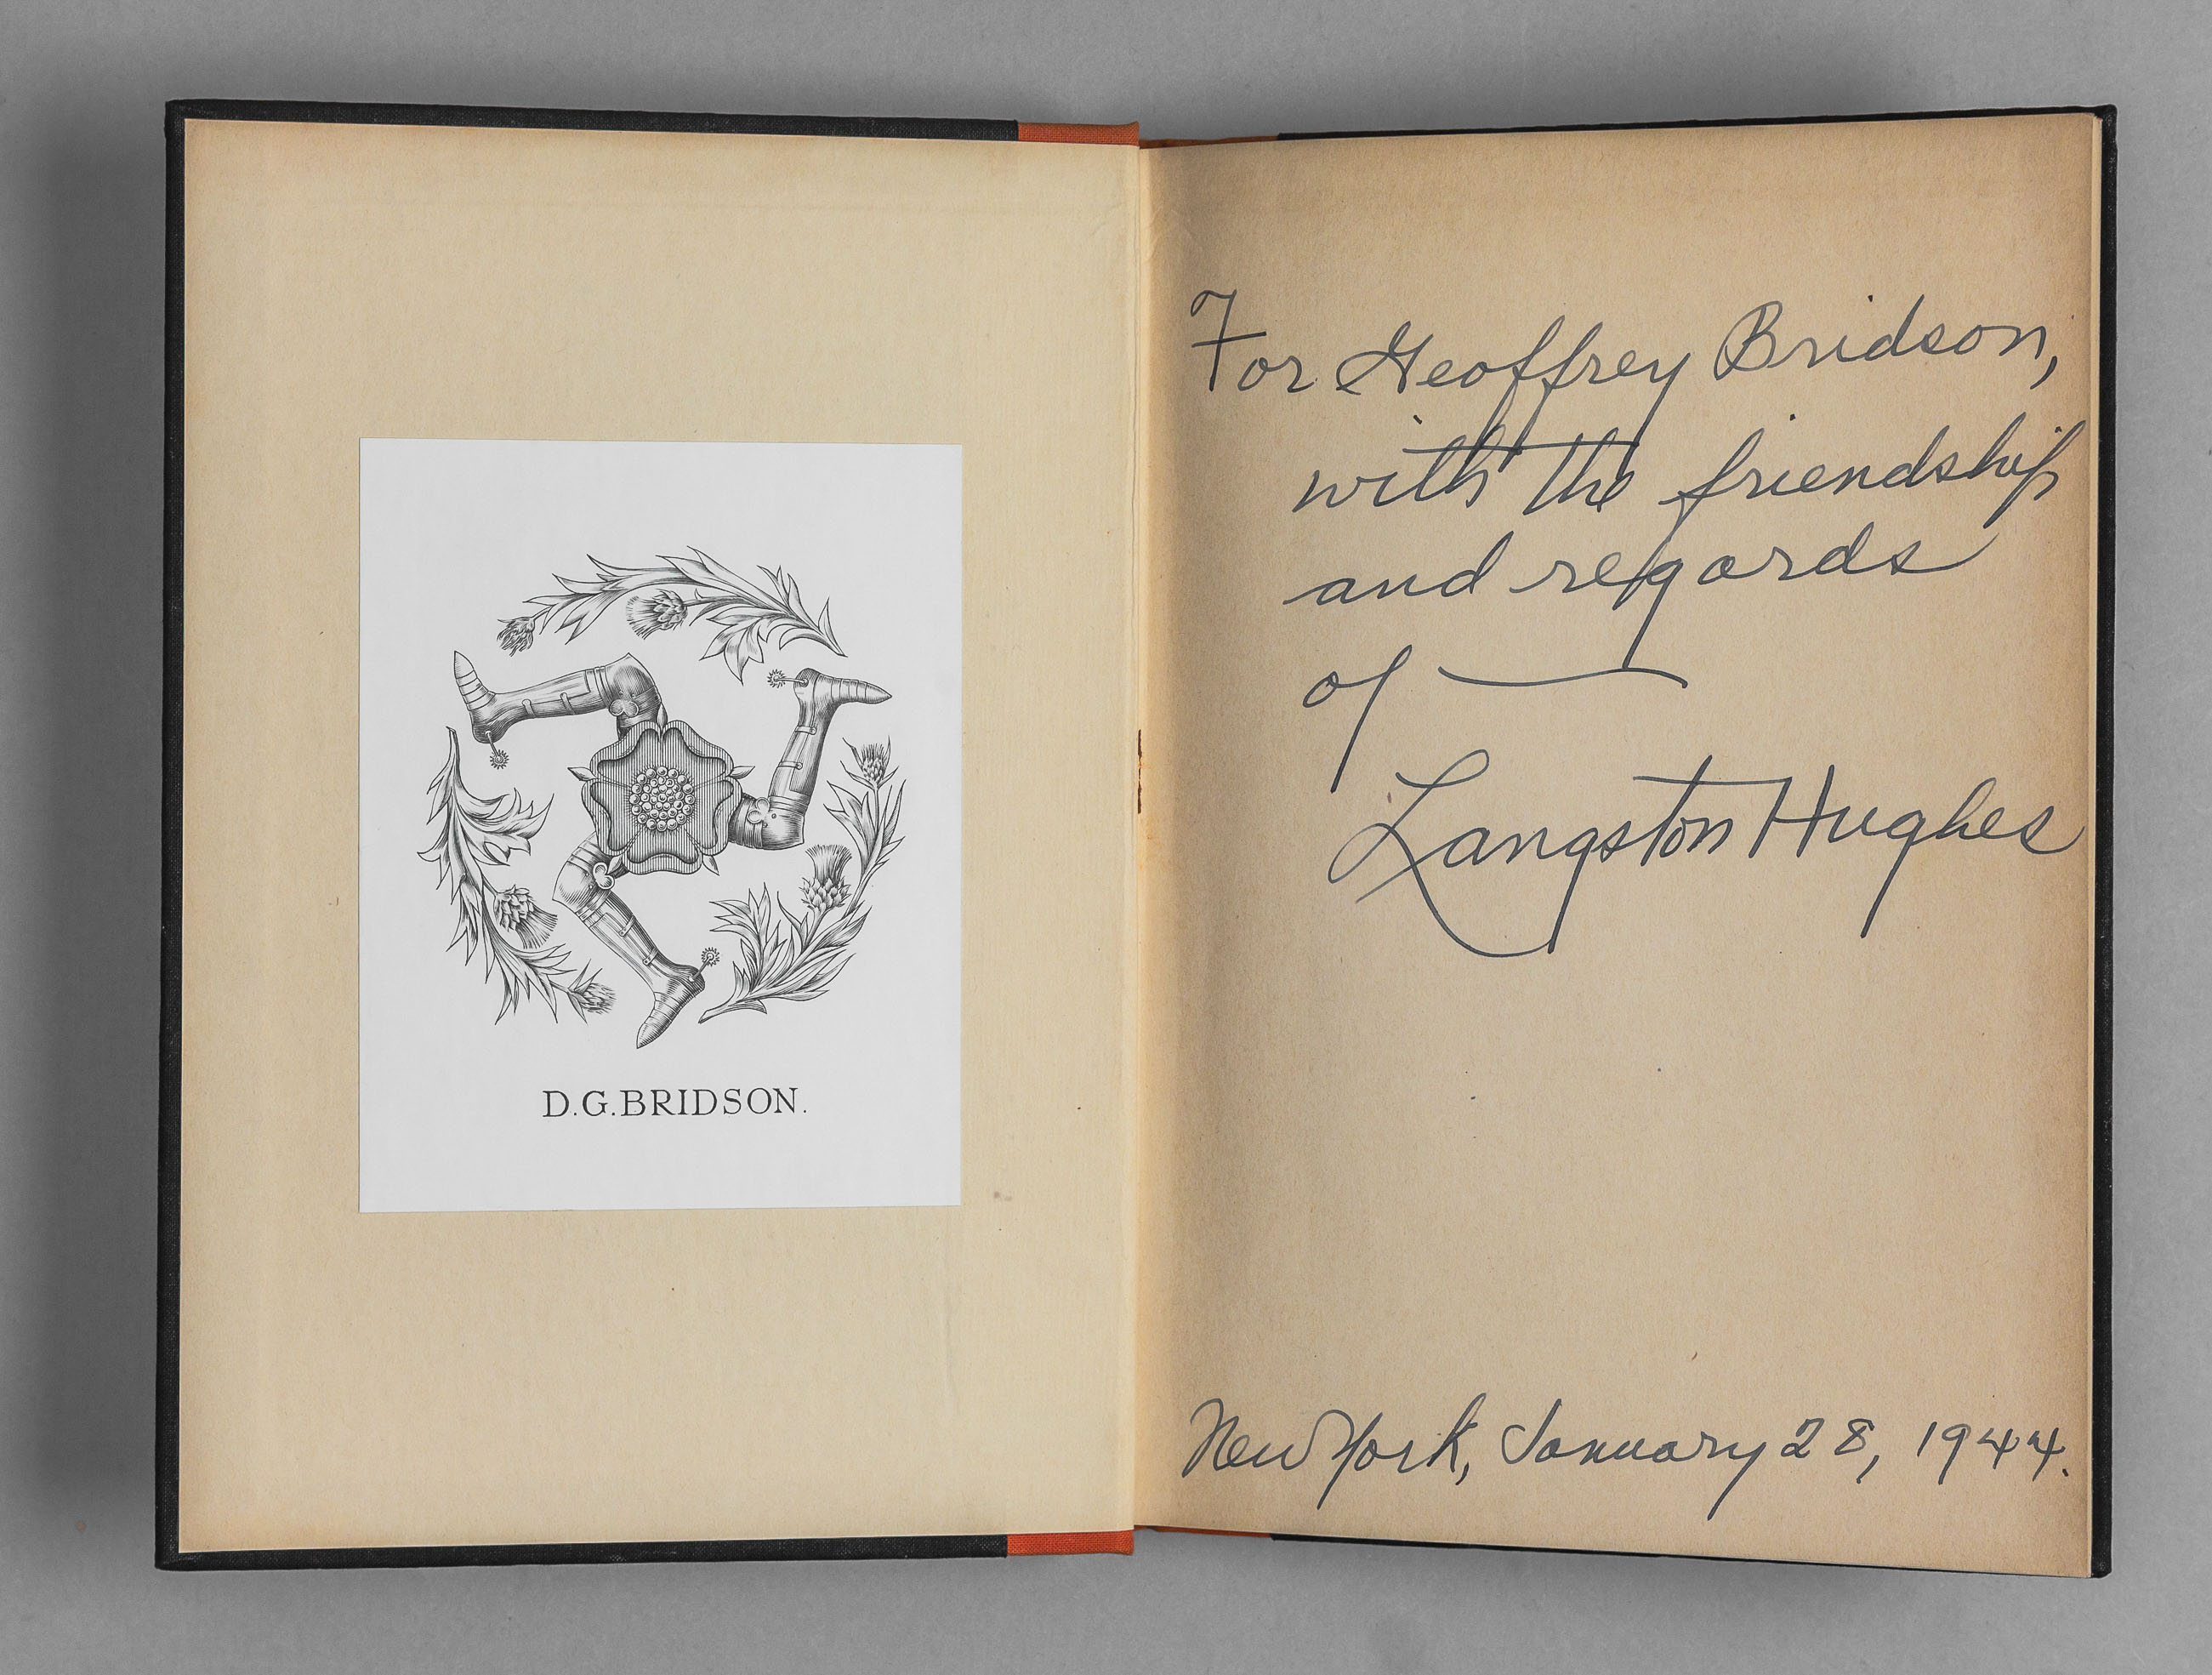 D.G.BRIDSON.
For Geoffrey Bridson,
with the friendship
and regards
of —
Langston Hughes
New York, January 28, 1944.